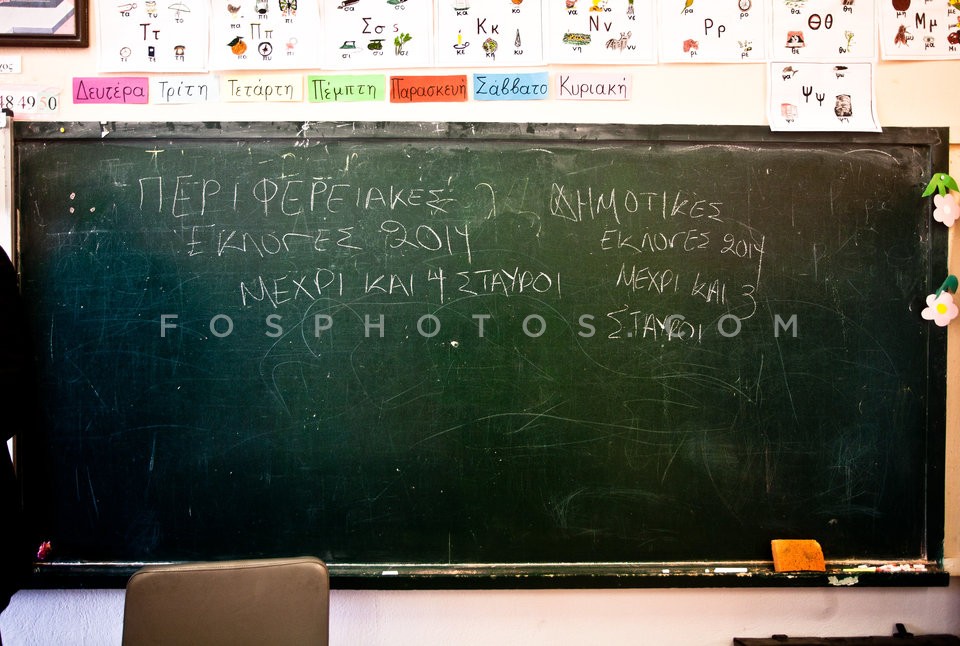 Ττ
Ππ
Σσς
Κκ
Νν
Ρρ
Θθ
Μμ
48 49 50
Δευτέρα Τρίτη Τετάρτη Πέμπτη Παρασκευή Σάββατο Κυριακή
Ψψ
ΠΕΡΙΦΕΡΕΙΑΚΕΣ
ΕΚΛΟΓΕΣ 2014
ΜΕΧΡΙ ΚΑΙ 4 ΣΤΑΥΡΟΙ
ΔΗΜΟΤΙΚΕΣ
ΕΚΛΟΓΕΣ 2014
ΜΕΧΡΙ ΚΑΙ 3
ΣΤΑΥΡΟΙ
FOSPHOTOS.COM